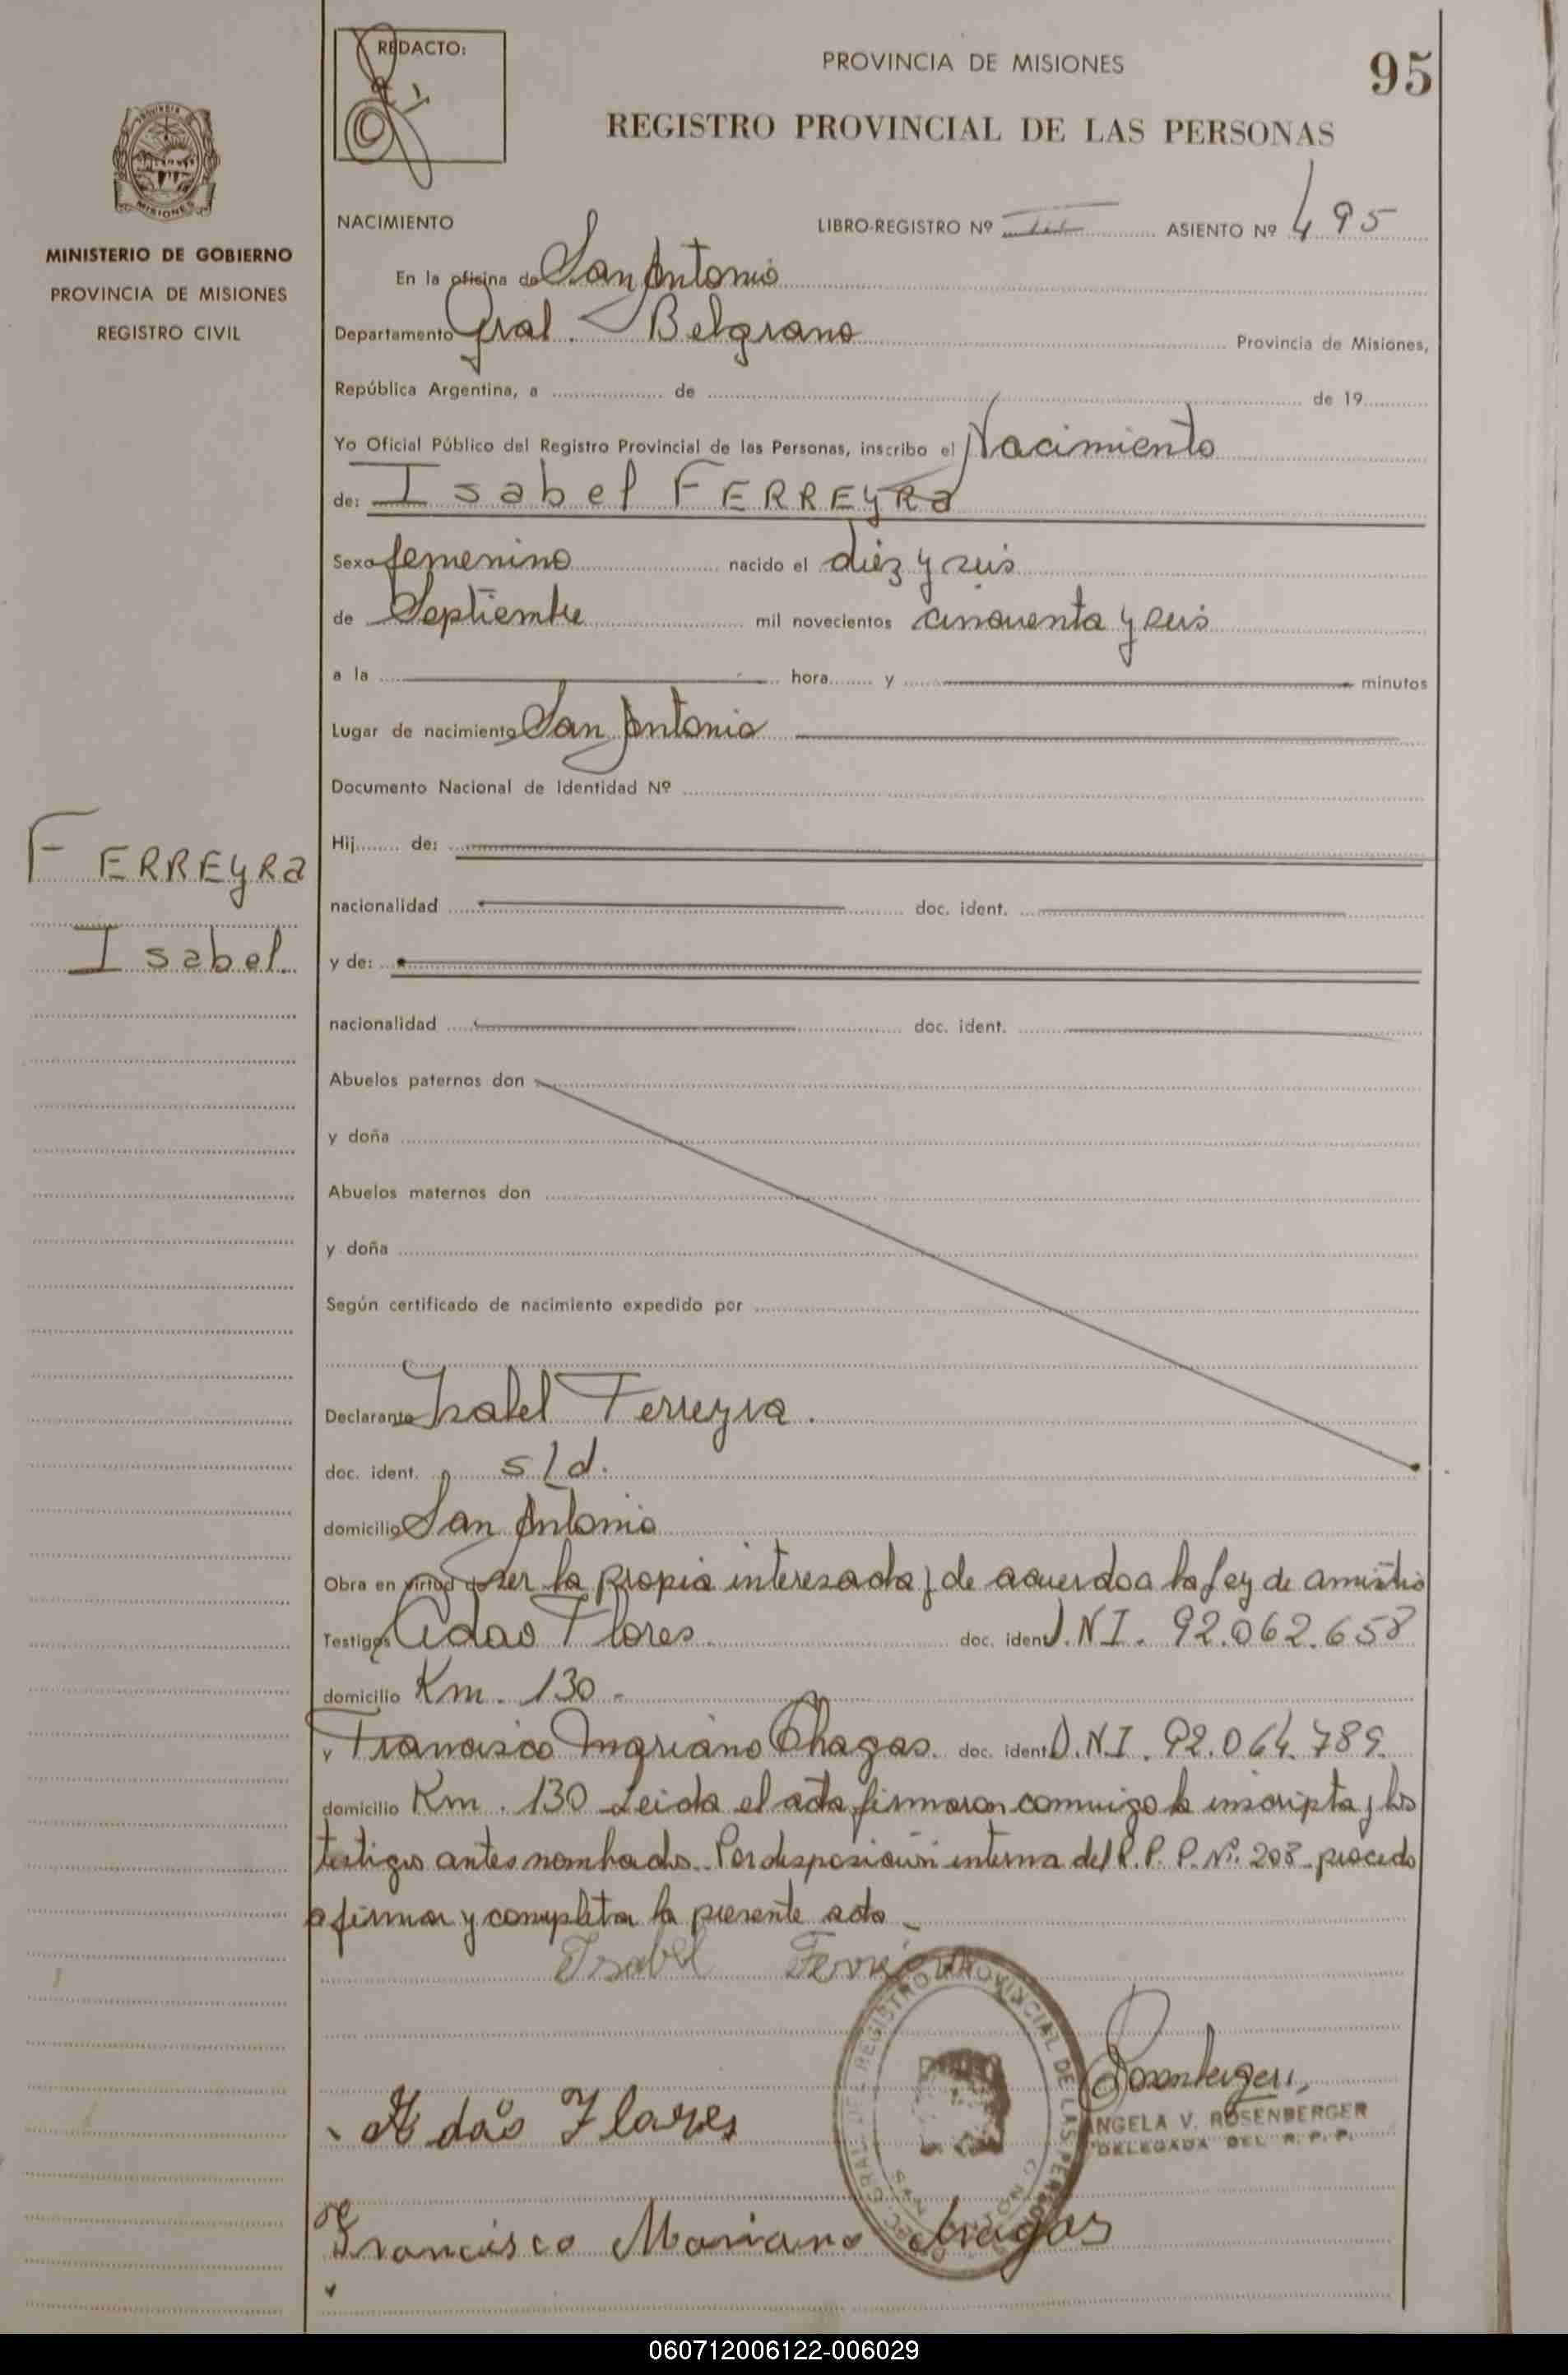 REDACTO:
PROVINCIA DE MISIONES
95
REGISTRO PROVINCIAL DE LAS PERSONAS
MISIONES
MINISTERIO DE GOBIERNO
PROVINCIA DE MISIONES
REGISTRO CIVIL
NACIMIENTO LIBRO-REGISTRO Nº III ASIENTO Nº 495
En la oficina de San Antonio
Departamento Gral. Belgrano Provincia de Misiones,
República Argentina, a de de 19
Yo Oficial Público del Registro Provincial de las Personas, inscribo el Nacimiento
de: Isabel FERREYRa
Sexo femenino nacido el diez y seis
de Septiembre mil novecientos cincuenta y seis
a la hora y minutos
Lugar de nacimiento San Antonio
Documento Nacional de Identidad Nº
Hij de:
FERREYRa
nacionalidad doc. ident.
Isabel
y de:
nacionalidad doc. ident.
Abuelos paternos don
y doña
Abuelos maternos don
y doña
Según certificado de nacimiento expedido por
Declarante Isabel Ferreyra.
doc. ident. s/d.
domicilio San Antonio
Obra en virtud de ser la propia interesada y de acuerdo a la Ley de amistia
Testigos Adao Flores doc. ident. D.N.I. 92.062.658
domicilio Km. 130-
y Francisco Mariano Chagas doc. ident. D.N.I. 92.064.789.
domicilio Km. 130 Leida el acta firmaron conmigo la inscripta y los
testigos antes nombrados. Por disposición interna del R.P.P. Nº. 208 procedo
a firmar y completar la presente acta
Isabel
REGISTRO PROVINCIAL DE LAS PERSONAS
Rosenberger
Adão Flores
ANGELA V. ROSENBERGER
DELEGADA DEL R.P.P.
Francisco Mariano chagas
060712006122-006029